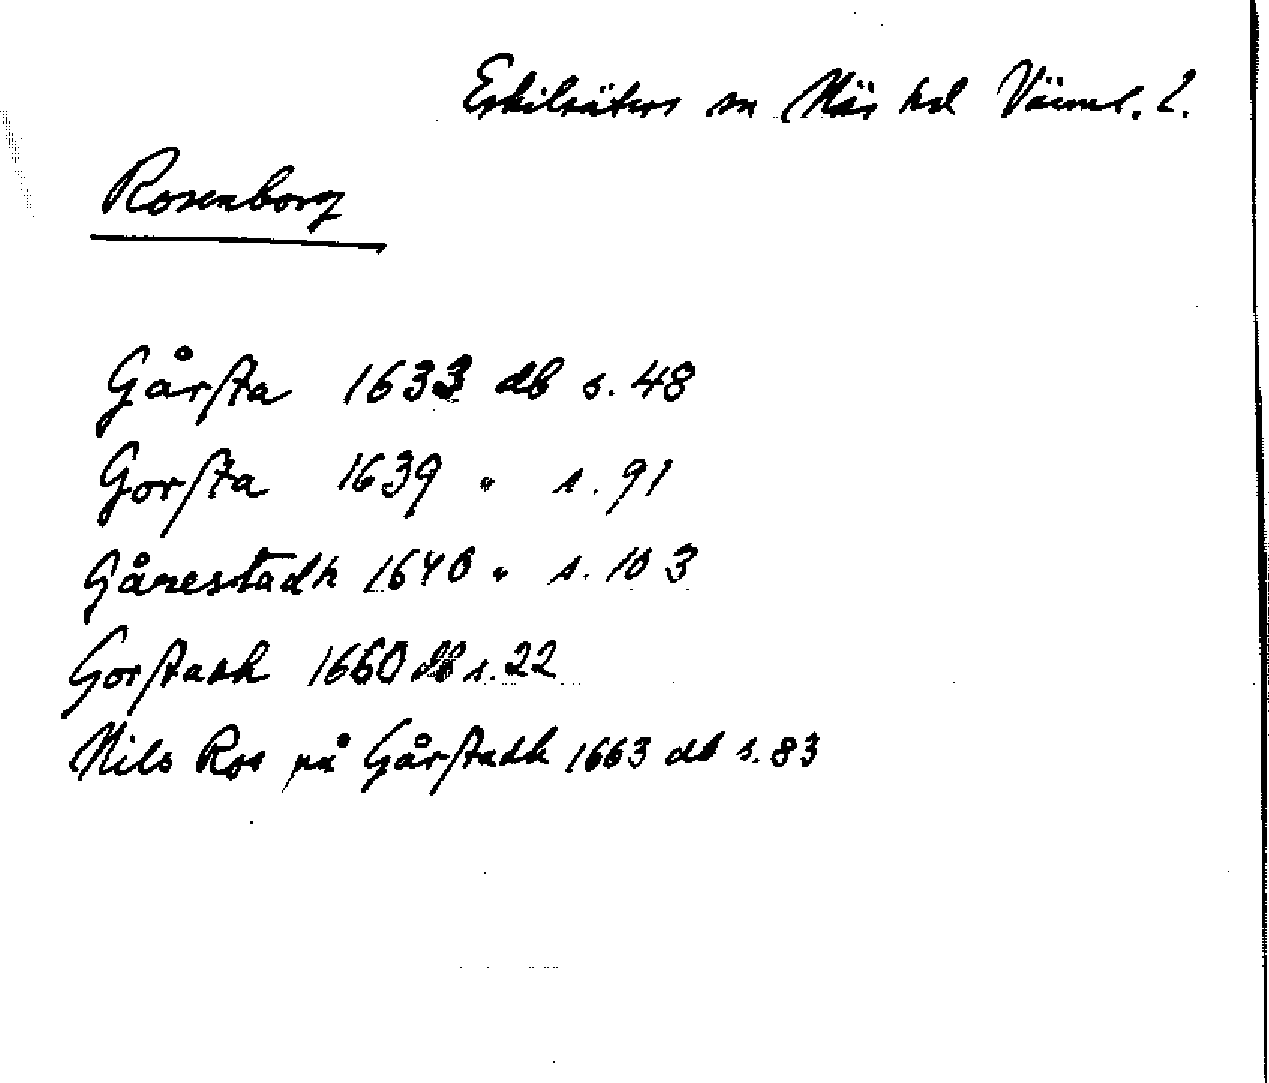 Eskilsäters sn Näs hd Värml. l.
Rosenborg
Gårsta 1633 db s. 48
Gorsta 1639 " s. 91
Gårestadh 1640 " s. 103
Gorstadh 1660 db s. 22
Nils Ros på Gårstadh 1663 db s. 83